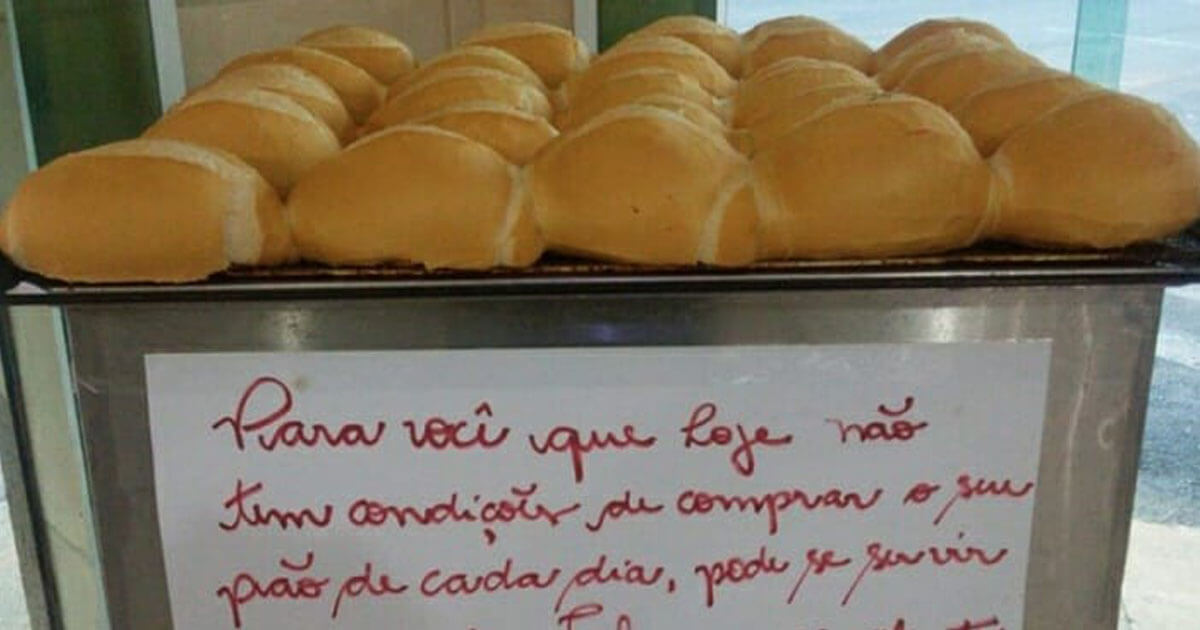 Para você que hoje não
tem condições de comprar o seu
pão de cada dia, pode se servir